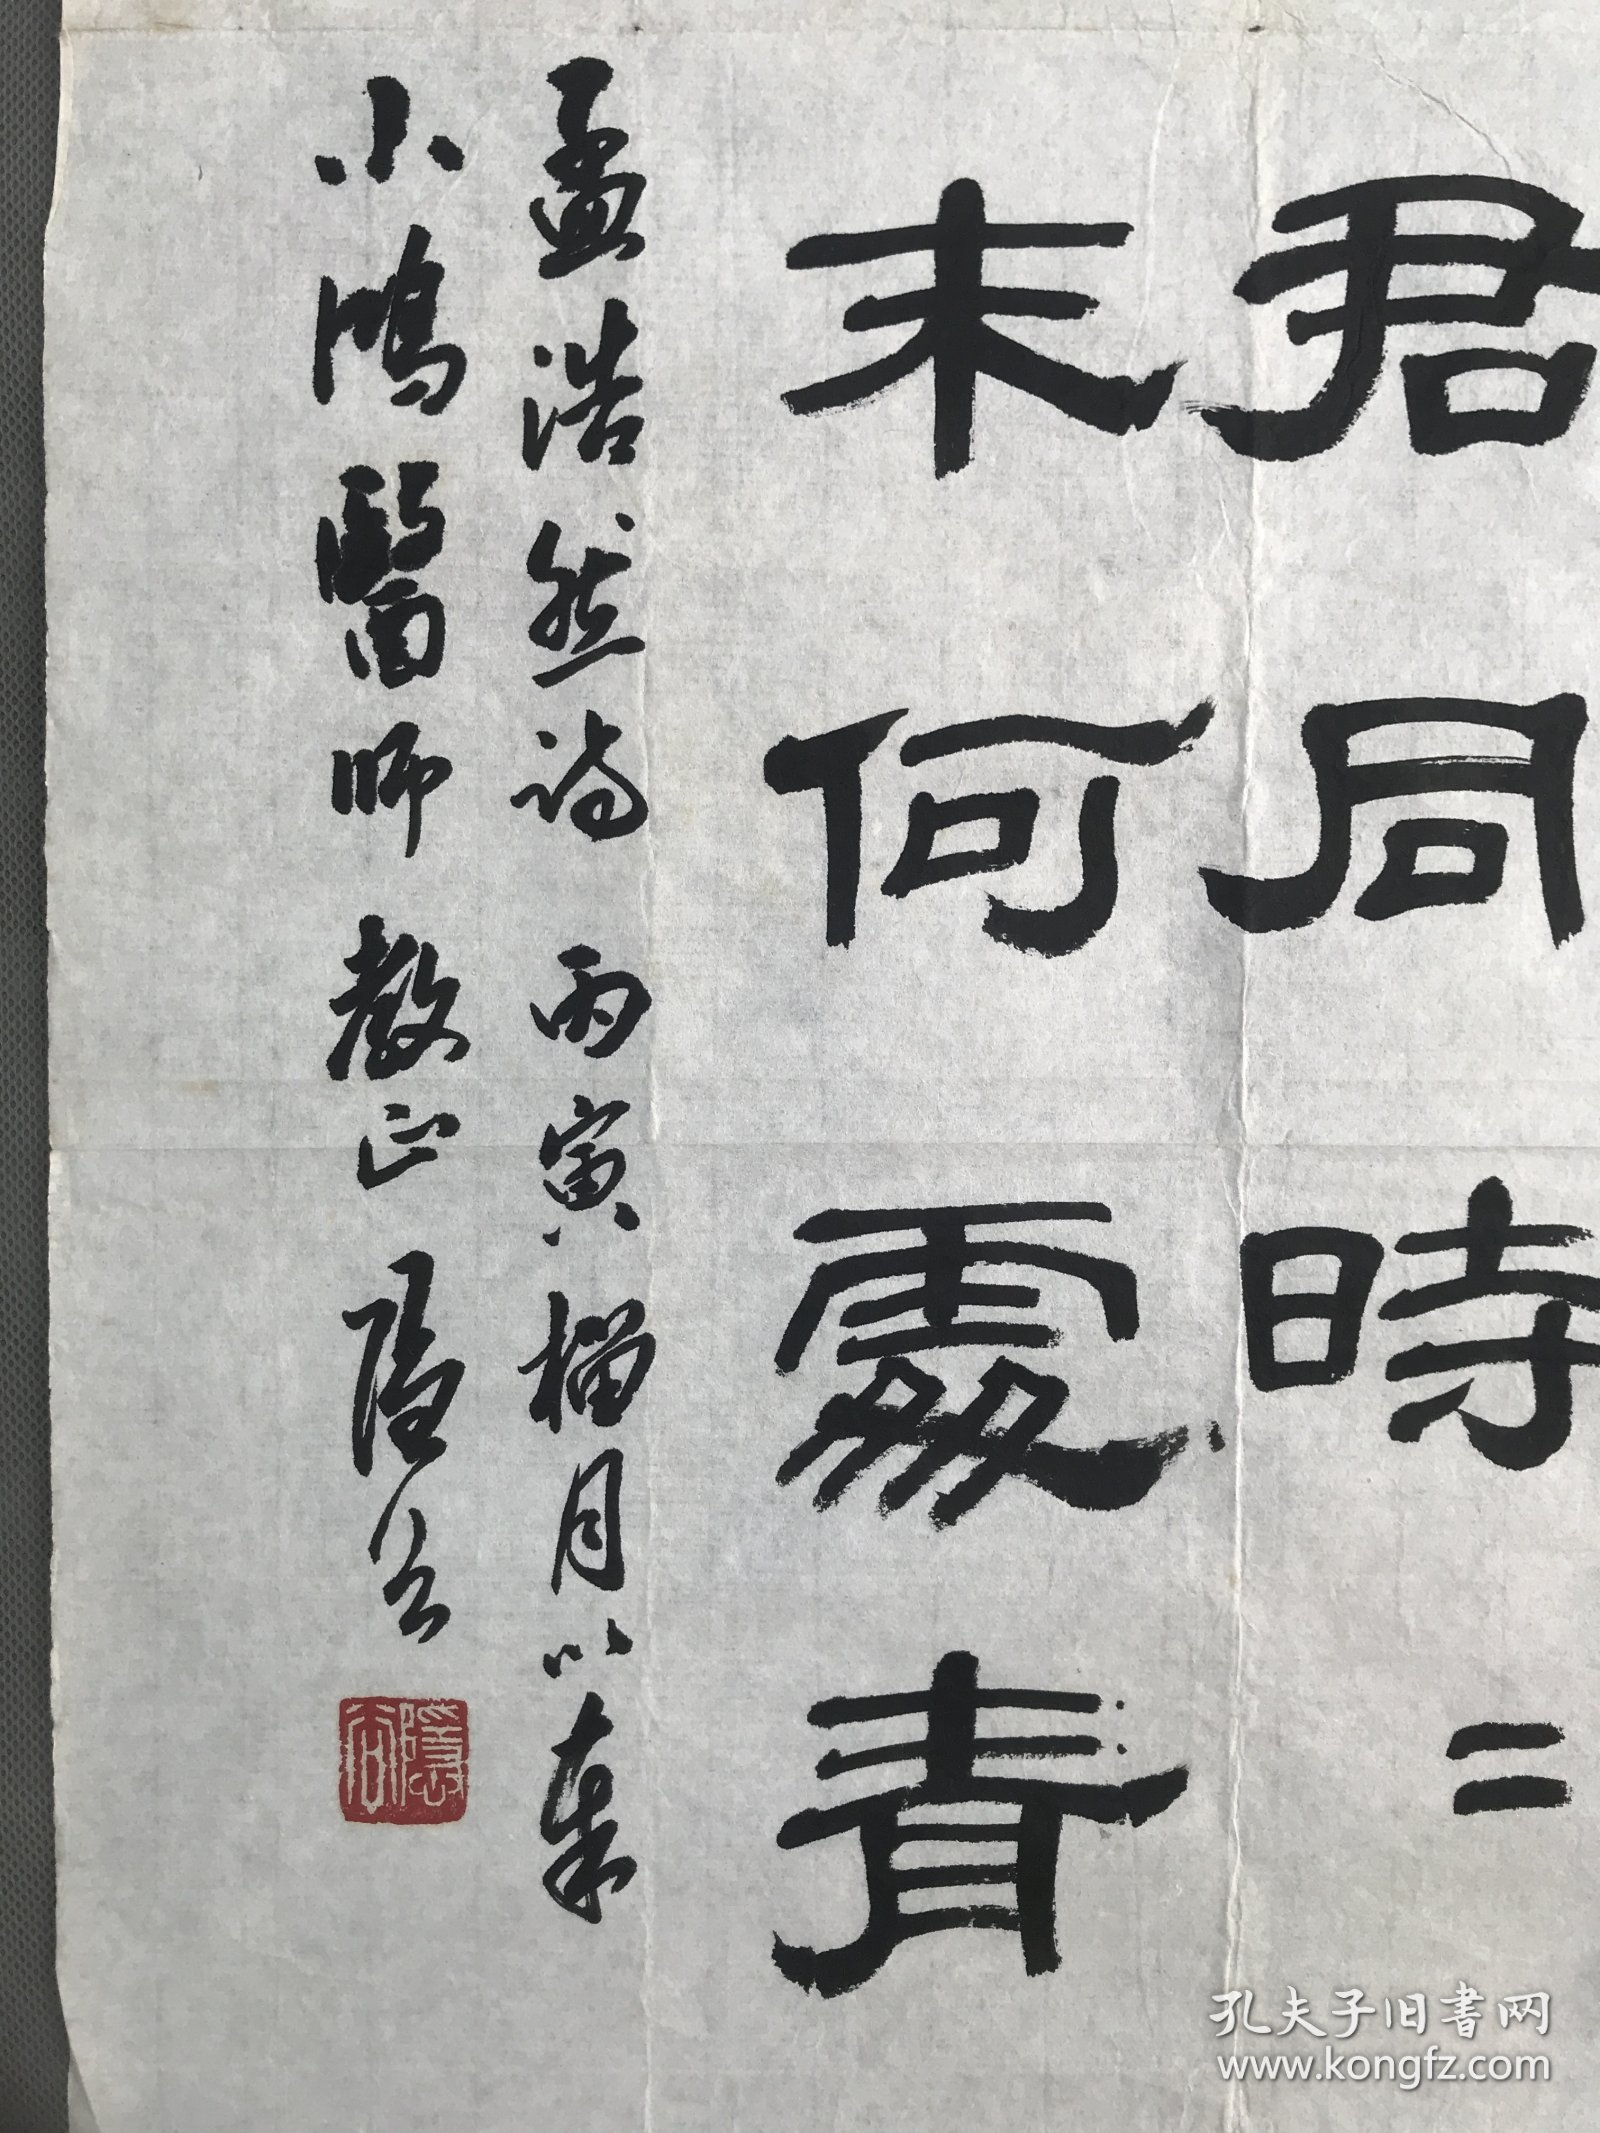 君同時二
末何處青
孟浩然詩 丙寅榴月以奉
小鴻醫師教正 隱公
孔夫子旧书网
www.kongfz.com